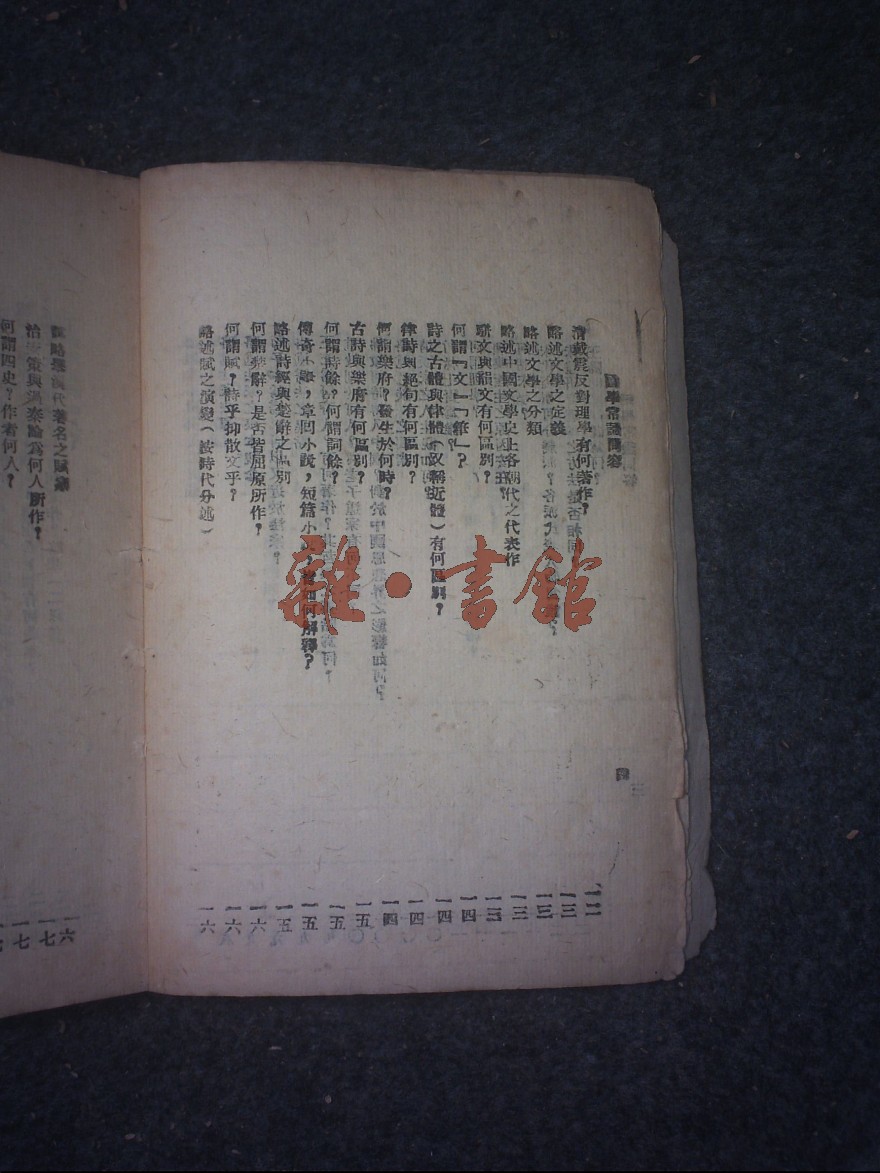 國學常識問答
清戴震反對理學有何著作？ 一二
略述文學之定義 一三
略述文學之分類 一三
略述中國文學史上各朝代之代表作 一三
駢文與韻文有何區別？ 一三
何謂『文』『筆』？ 一四
詩之古體與律體（又稱近體）有何區別？ 一四
律詩與絕句有何區別？ 一四
何謂樂府？發生於何時？ 一四
古詩與樂府有何區別？ 一五
何謂詩餘？何謂詞餘？ 一五
傳奇小說，章回小說，短篇小說，如何解釋？ 一五
略述詩經與楚辭之區別 一五
何謂楚辭？是否皆屈原所作？ 一六
何謂賦？詩乎抑散文乎？ 一六
略述賦之演變（按時代分述） 一六
四
略述漢代著名之賦家 一六
治安策與過秦論爲何人所作？ 一七
何謂四史？作者何人？ 一七
雜·書館